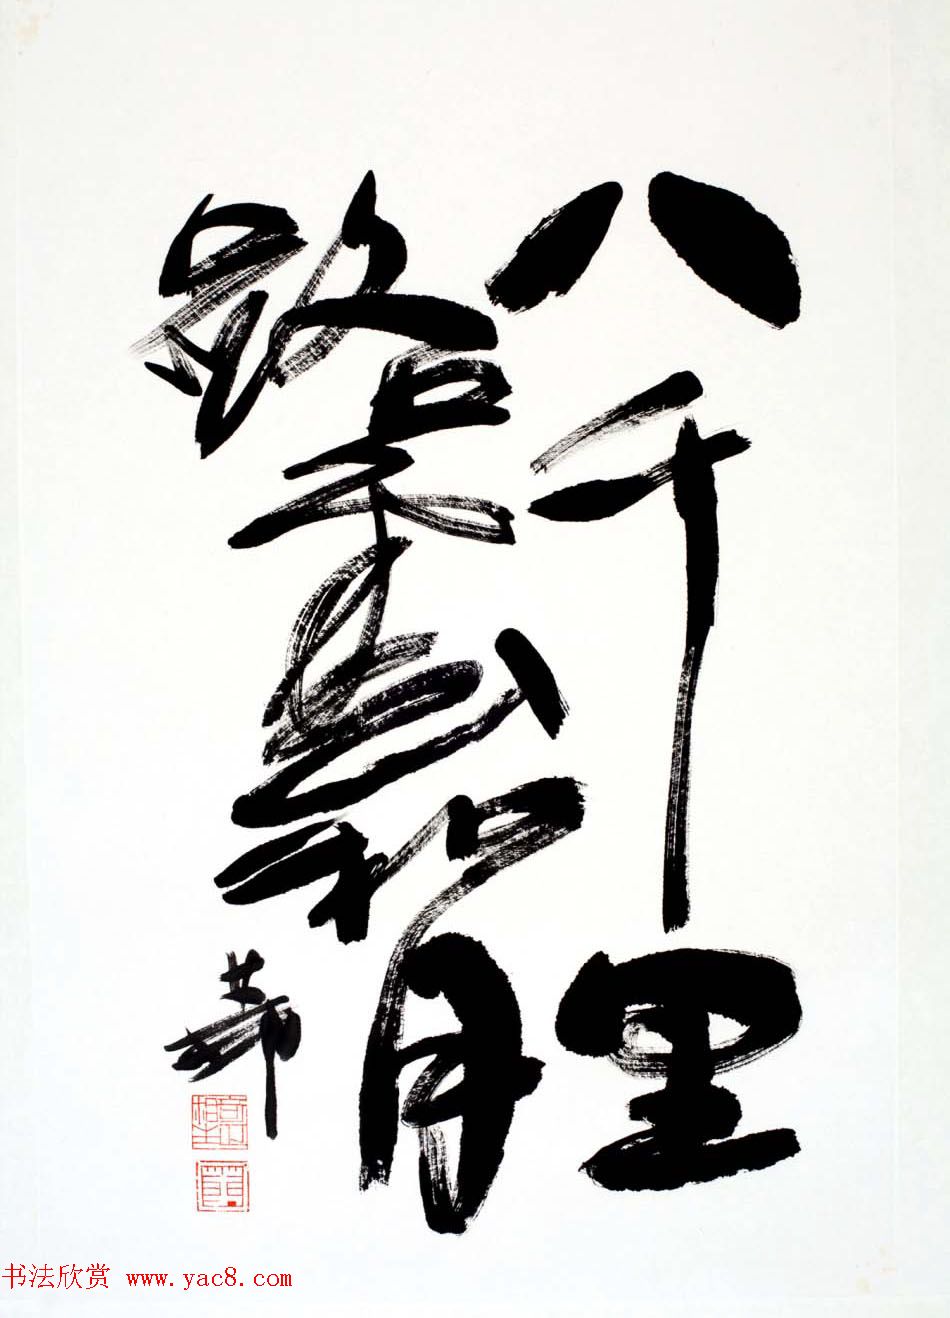 八千里
路云和月
书法欣赏 www.yac8.com